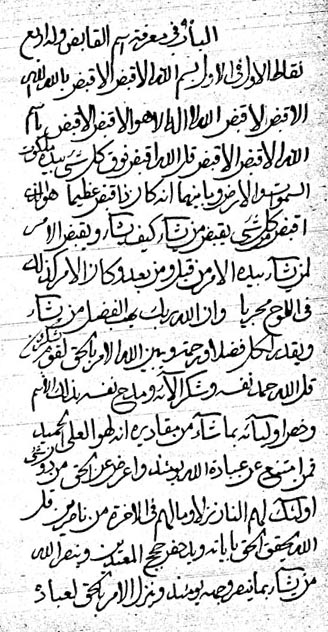 الباب فى معرفة اسم القابض وله اربع
الاول فى الاول بسم الله الاقبض الاقبض بالله الله
الاقبض الاقبض الله لا اله الا هو الاقبض الاقبض
الله الاقبض الاقبض قل الله اقبض فوق كل شىء بيده ملكوت
السموات والارض وما بينهما انه كان قباضا عظيما هو الذى
اقبض من كل شىء يقبض من يشاء كيف يشاء ويقبض الامر
لمن يشاء بيده الامر من قبل ومن بعد وكان الامر كذلك
فى اللوح وان الله ربك يهب الفضل من يشاء
ويقدر لكل فضلا ورحمة وبين الله الامر بالحق لقوم يشكرون
قل الله حمد نفسه وشكر الائه ومدح نفسه بذلك الاسم
وخص اوليائه بما شاء من مقاديره انه لهو العلى الحميد
فمن امتنع عن عبادة الله يومئذ واعرض عن الحق من دون
اولئك لهم النار نزلا وما لهم فى الاخرة من ناصرين قل
الله يحق الحق باياته ويدحض حجج المعتدين وينصر الله
من يشاء يومئذ وينزل الامر بالحق لعباده